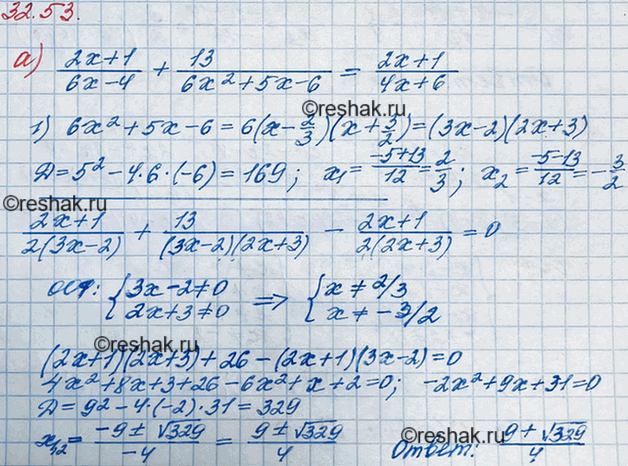 32.53.
а) (2x+1)/(6x-4) + 13/(6x²+5x-6) = (2x+1)/(4x+6)
©reshak.ru
1) 6x²+5x-6=6(x-2/3)(x+3/2)=(3x-2)(2x+3)
Д=5²-4·6·(-6)=169; x₁=(-5+13)/12=2/3; x₂=(-5-13)/12=-3/2
©reshak.ru
©reshak.ru
(2x+1)/(2(3x-2)) + 13/((3x-2)(2x+3)) - (2x+1)/(2(2x+3)) =0
ОДЗ: {3x-2≠0 ⇒ {x≠2/3
{2x+3≠0 {x≠-3/2
©reshak.ru
(2x+1)(2x+3)+26-(2x+1)(3x-2)=0
4x²+8x+3+26-6x²+x+2=0; -2x²+9x+31=0
Д=9²-4·(-2)·31=329
©reshak.ru
x₁,₂=(-9±√329)/(-4) = (9±√329)/4 Ответ: (9±√329)/4